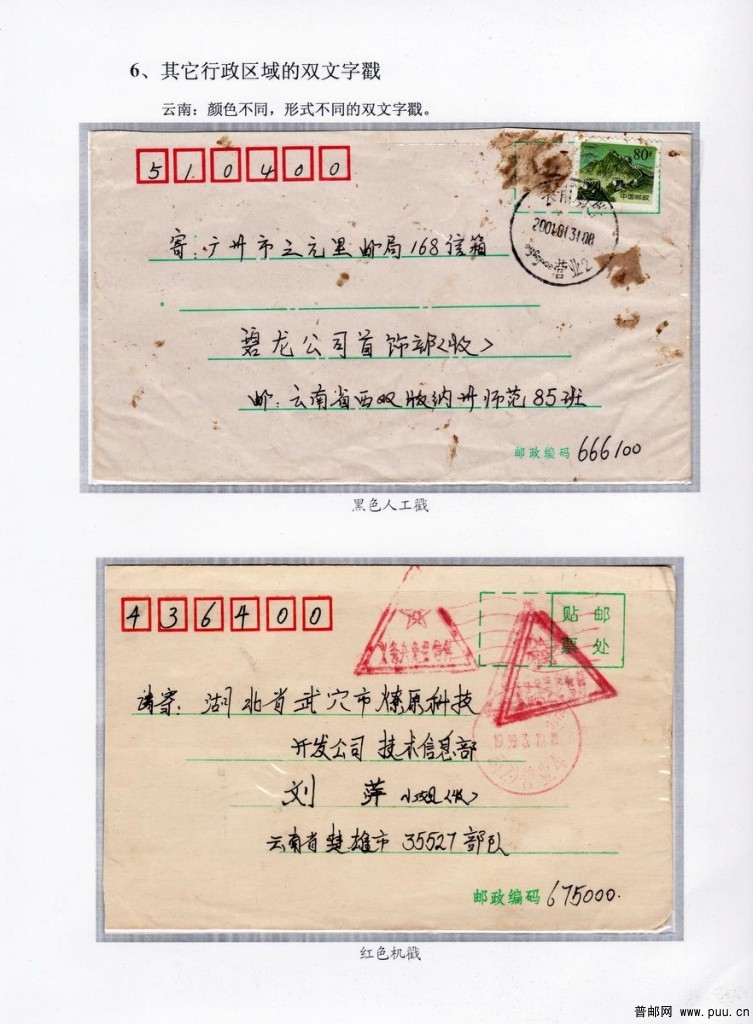 6、其它行政区域的双文字戳
云南：颜色不同，形式不同的双文字戳。
510400
80分
中国邮政
2001.01.31.08
营业2
寄：广州市三元里邮局168信箱
碧龙公司首饰部<收>
邮：云南省西双版纳州师范85班
邮政编码 666100
黑色人工戳
436400
义务兵免费信件
贴 邮
票 处
请寄：湖北省武穴市燎原科技
开发公司 技术信息部
刘 萍 小姐<收>
云南省楚雄市 35527部队
邮政编码 675000.
红色机戳
普邮网 www.puu.cn